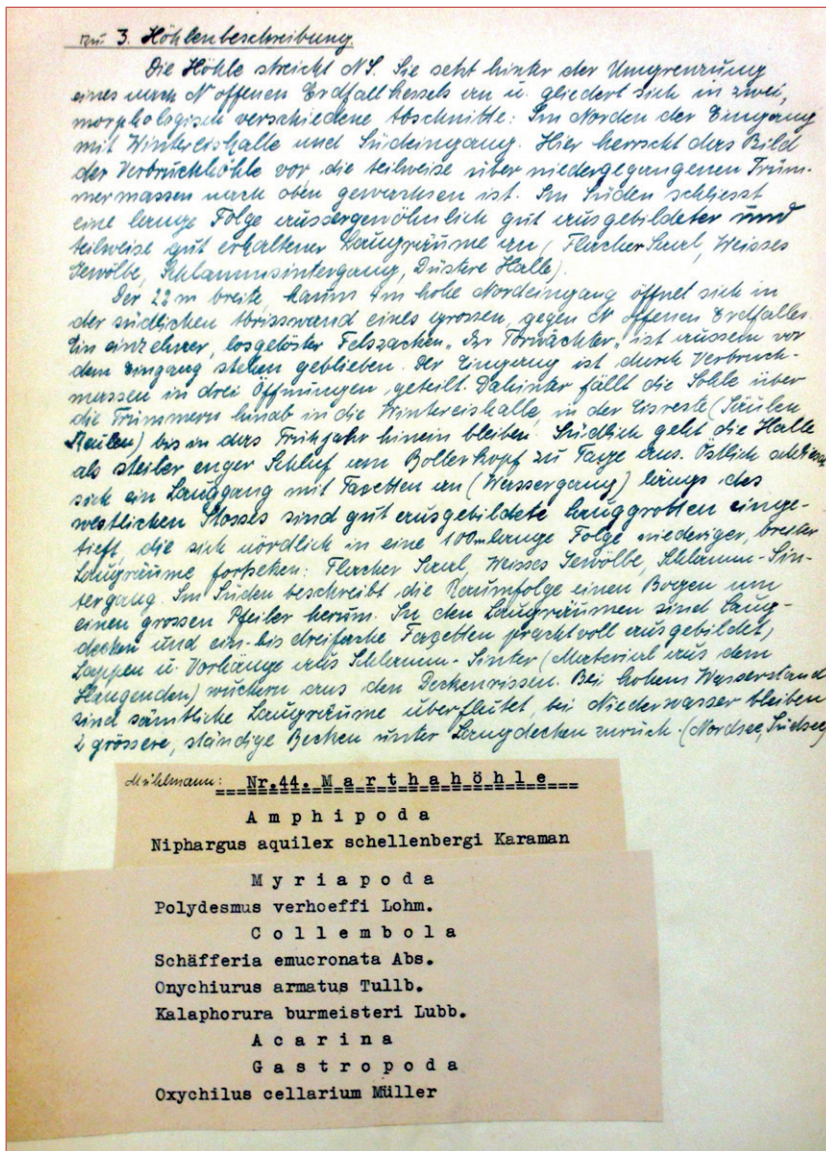 zu: 3. Höhlenbeschreibung.
Die Höhle streicht NS. Sie setzt hinter der Umgrenzung
eines nach N offenen Erdfallkessels an u. gliedert sich in zwei,
morphologisch verschiedene Abschnitte: Im Norden der Eingang
mit Wintereishalle und Südeingang. Hier herrscht das Bild
der Verbruchhöhle vor die teilweise über niedergegangenen Trüm-
mermassen nach oben gewachsen ist. Im Süden schliesst
eine lange Folge aussergewöhnlich gut ausgebildeter und
teilweise gut erhaltener Laugräume an (Flacher Saal, Weisses
Gewölbe, Schlammsintergang, Düstere Halle).
Der 22 m breite, kaum 4m hohe Nordeingang öffnet sich in
der südlichen Abrisswand eines grossen, gegen N offenen Erdfalles.
Ein einzelner, losgelöster Felszacken, der Torwächter, ist aussem vor
dem Eingang stehen geblieben. Der Eingang ist durch Verbruch-
massen in drei Öffnungen geteilt. Dahinter fällt die Sohle über
die Trümmern hinab in die Wintereishalle, in der Eisreste (Säulen
Keulen) bis in das Frühjahr hinein bleiben. Südlich geht die Halle
als steiler enger Schluf am Bollerkopf zu Tage aus. Östlich
sich ein Lauggang mit Facetten an (Wassergang) längs des
westlichen Stosses sind gut ausgebildete Lauggrotten einge-
tieft, die sich nördlich in eine 100m lange Folge niederiger, breiter
Laugräume fortsetzen: Flacher Saal, Weisses Gewölbe, Schlamm-Sin-
tergang. Im Süden beschreibt die Raumfolge einen Bogen um
einen grossen Pfeiler herum. In den Laugräumen sind Laug-
decken und ein- bis dreifache Facetten prachtvoll ausgebildet,
Lappen u. Vorhänge aus Schlamm-Sinter (Material aus dem
Hangenden) wuchern aus den Deckenrissen. Bei hohem Wasserstand
sind sämtliche Laugräume überflutet, bei Niederwasser bleiben
2 grössere, ständige Becken unter Laugdecken zurück (Nordsee, Südsee)
Mühlmann: Nr.44. Marthahöhle
Amphipoda
Niphargus aquilex schellenbergi Karaman
Myriapoda
Polydesmus verhoeffi Lohm.
Collembola
Schäfferia emucronata Abs.
Onychiurus armatus Tullb.
Kalaphorura burmeisteri Lubb.
Acarina
Gastropoda
Oxychilus cellarium Müller